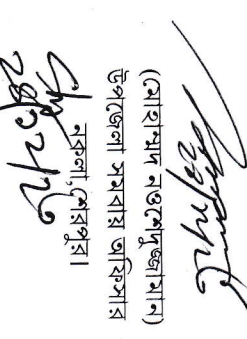 (মোহাম্মদ নওশেদুজ্জামান)
উপজেলা সমবায় অফিসার
নকলা, শেরপুর।